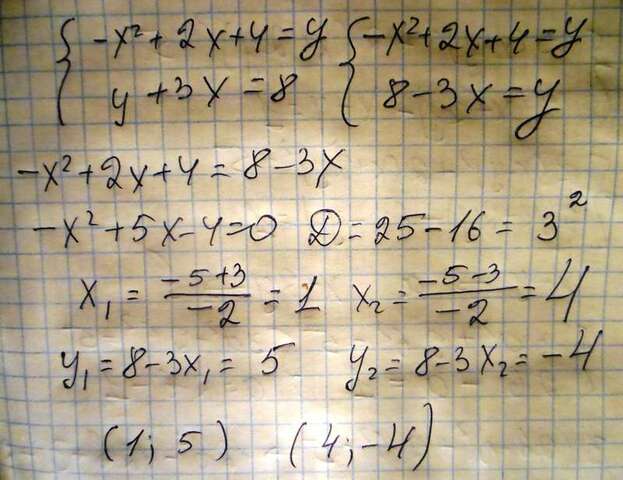 { -x² + 2x + 4 = y { -x² + 2x + 4 = y
y + 3x = 8 8 - 3x = y
-x² + 2x + 4 = 8 - 3x
-x² + 5x - 4 = 0 D = 25 - 16 = 3²
x₁ = (-5 + 3)/(-2) = 1 x₂ = (-5 - 3)/(-2) = 4
y₁ = 8 - 3x₁ = 5 y₂ = 8 - 3x₂ = -4
(1; 5) (4; -4)